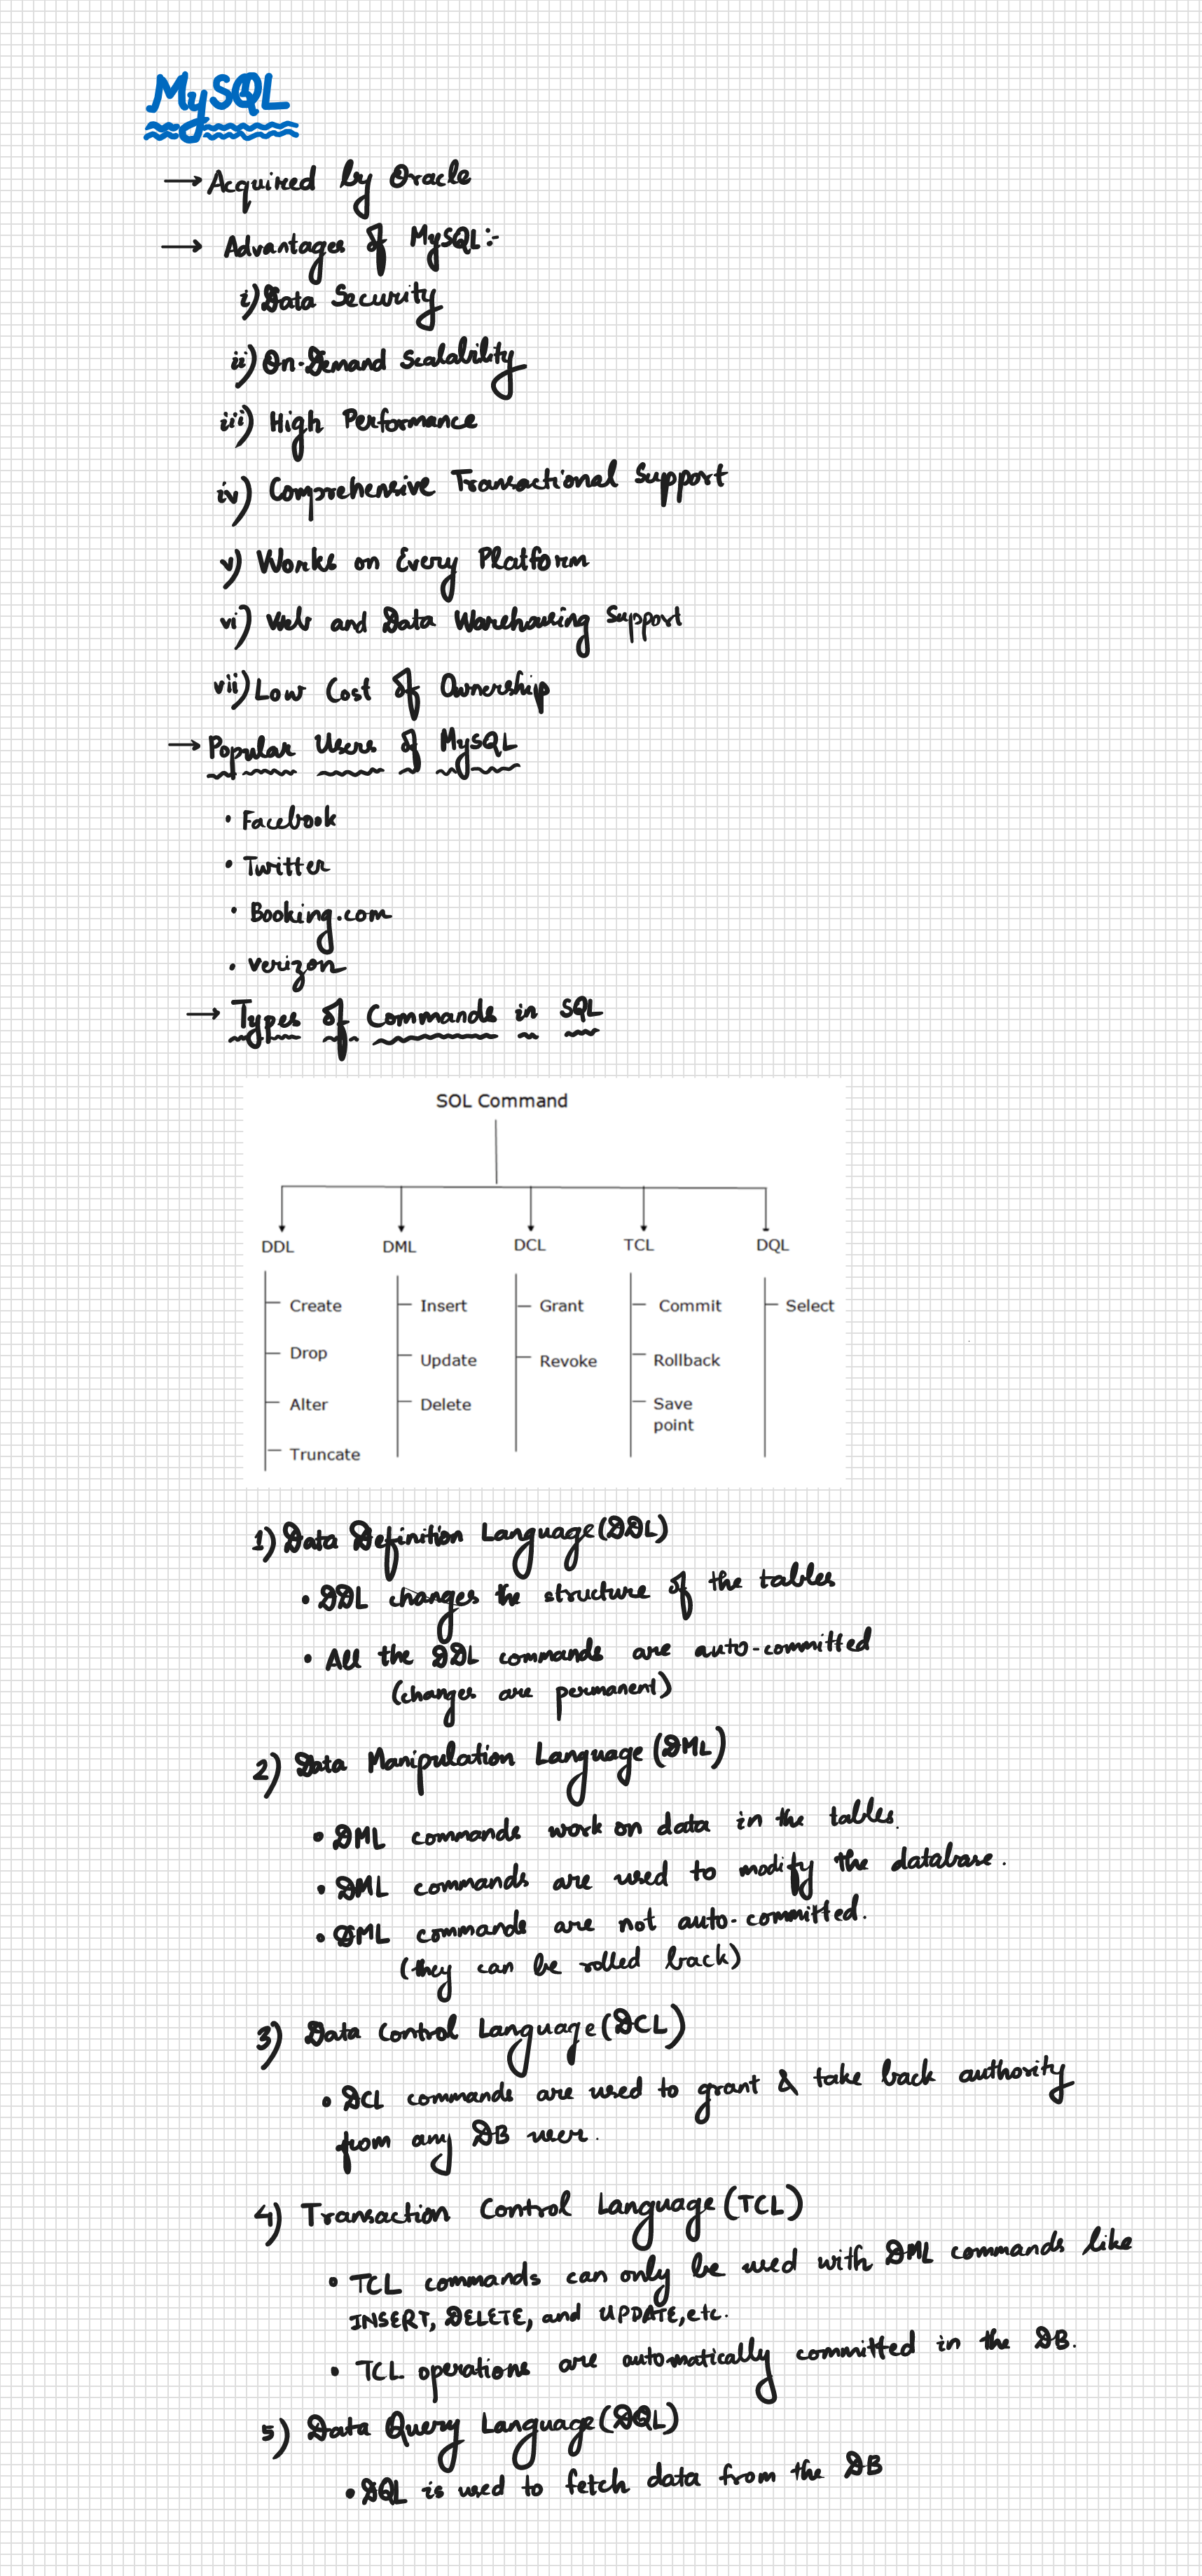 MySQL
→ Acquired by Oracle
→ Advantages of MySQL:-
i) Data Security
ii) On-Demand Scalability
iii) High Performance
iv) Comprehensive Transactional Support
v) Works on Every Platform
vi) Web and Data Warehousing Support
vii) Low Cost of Ownership
→ Popular Users of MySQL
• Facebook
• Twitter
• Booking.com
• Verizon
→ Types of Commands in SQL
SOL Command
DDL DML DCL TCL DQL
Create Insert Grant Commit Select
Drop Update Revoke Rollback
Alter Delete Save
point
Truncate
1) Data Definition Language (DDL)
• DDL changes the structure of the tables
• All the DDL commands are auto-committed
(changes are permanent)
2) Data Manipulation Language (DML)
• DML commands work on data in the tables.
• DML commands are used to modify the database.
• DML commands are not auto-committed.
(they can be rolled back)
3) Data Control Language (DCL)
• DCL commands are used to grant & take back authority
from any DB user.
4) Transaction Control Language (TCL)
• TCL commands can only be used with DML commands like
INSERT, DELETE, and UPDATE, etc.
• TCL operations are automatically committed in the DB.
5) Data Query Language (DQL)
• DQL is used to fetch data from the DB